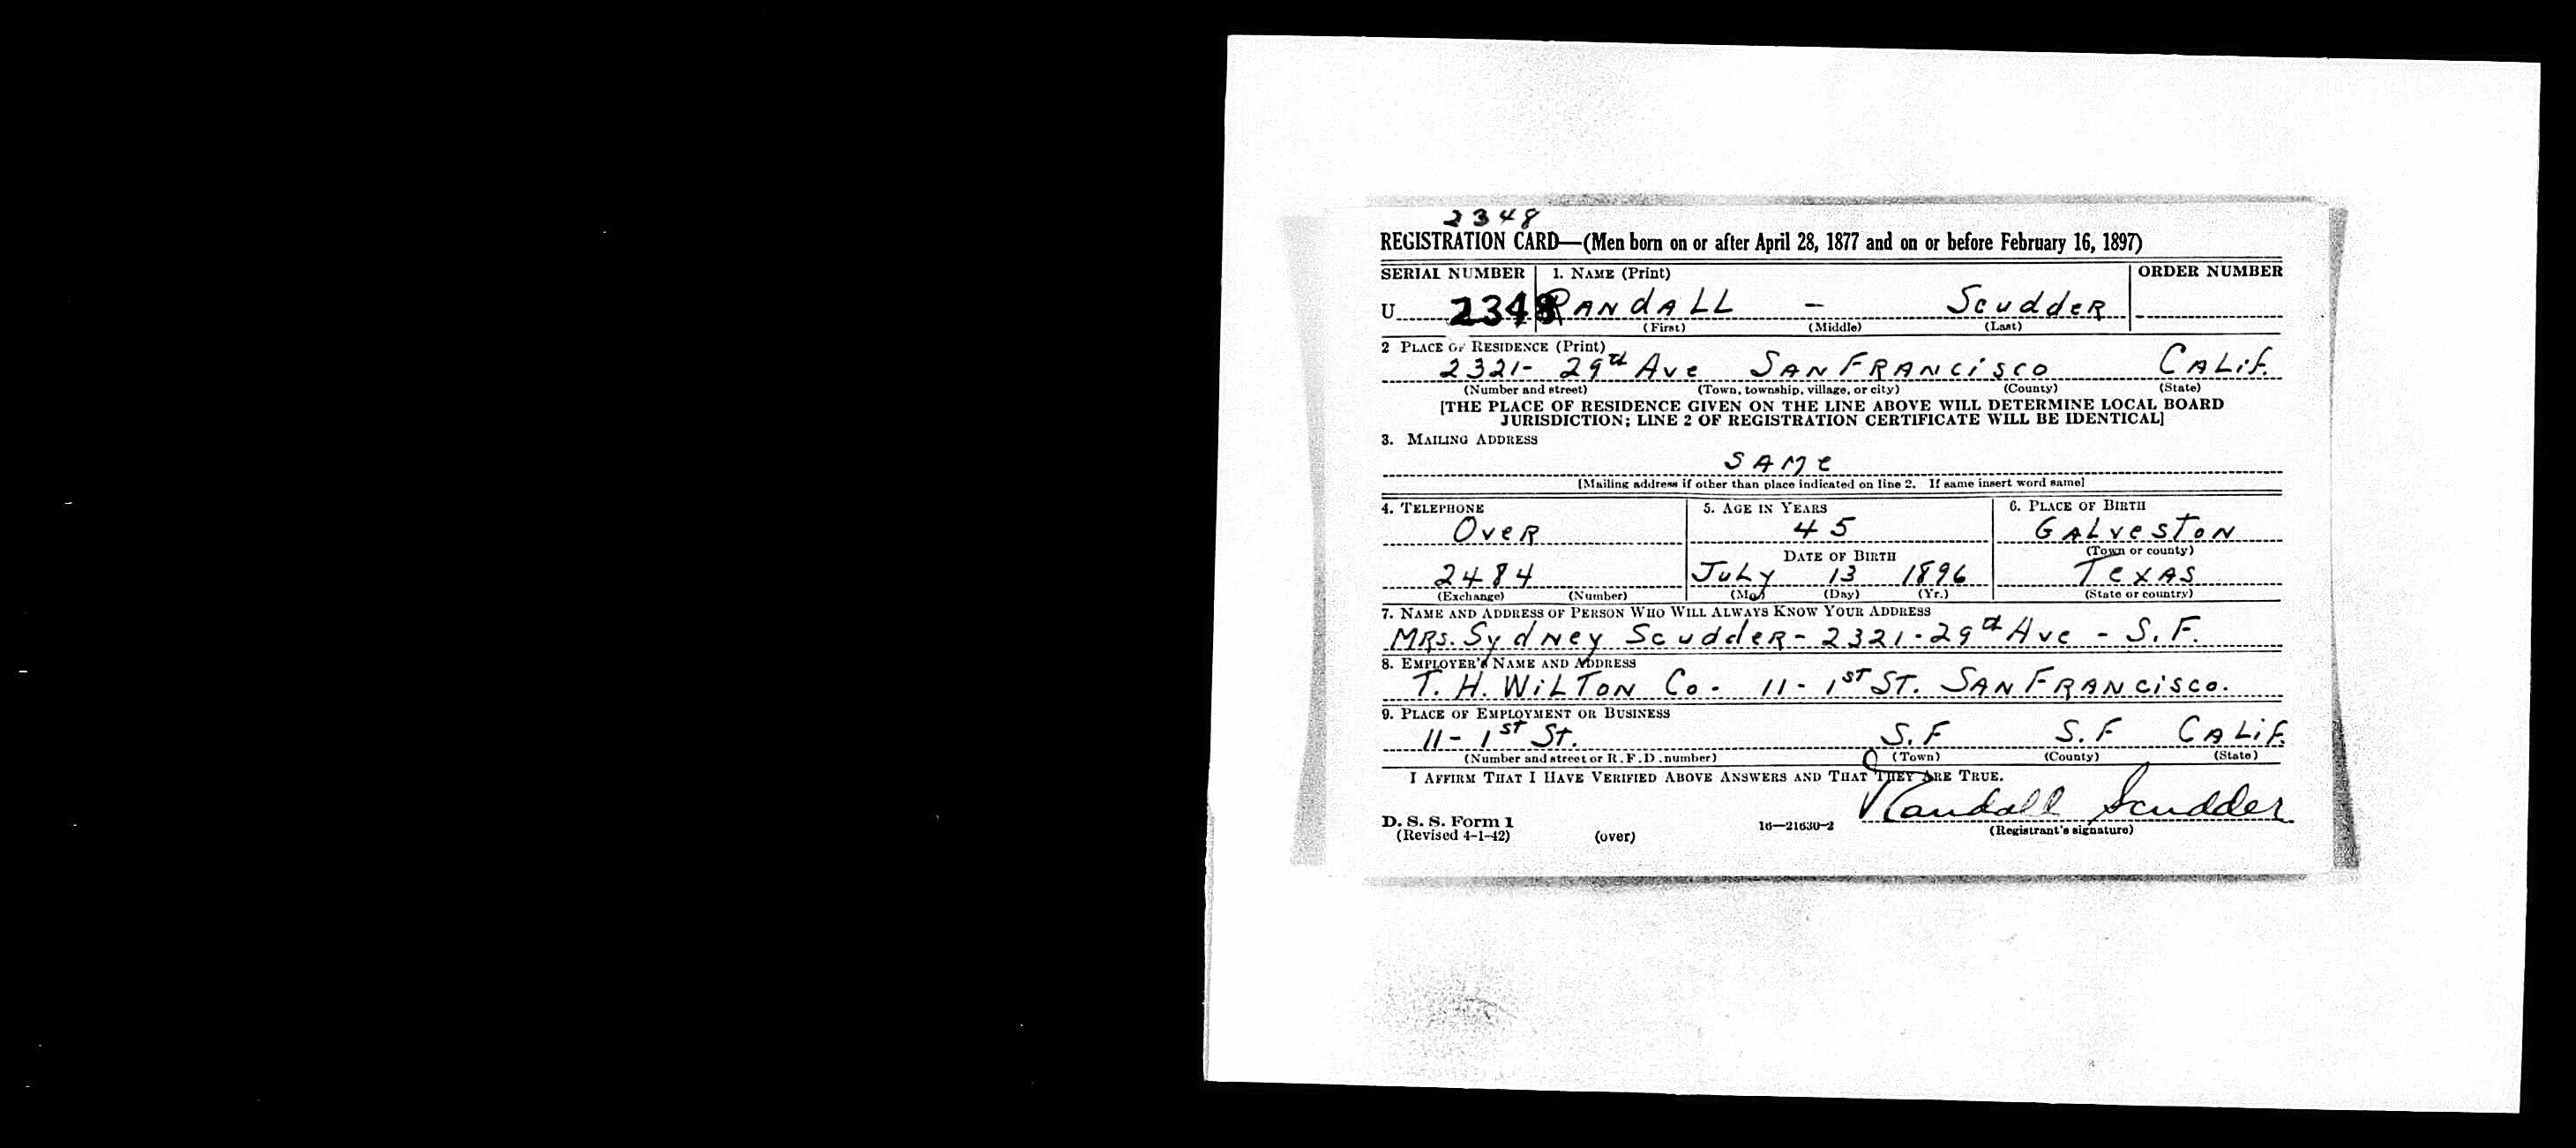 2348
REGISTRATION CARD—(Men born on or after April 28, 1877 and on or before February 16, 1897)
SERIAL NUMBER 1. NAME (Print) ORDER NUMBER
U 2348 RANdALL – ScuddeR
(First) (Middle) (Last)
2 PLACE OF RESIDENCE (Print)
2321- 29th Ave SAN FRANCiSCO CALiF.
(Number and street) (Town, township, village, or city) (County) (State)
[THE PLACE OF RESIDENCE GIVEN ON THE LINE ABOVE WILL DETERMINE LOCAL BOARD
JURISDICTION; LINE 2 OF REGISTRATION CERTIFICATE WILL BE IDENTICAL]
3. MAILING ADDRESS
SAMe
[Mailing address if other than place indicated on line 2. If same insert word same]
4. TELEPHONE 5. AGE IN YEARS 6. PLACE OF BIRTH
OveR 45 GALvesToN
DATE OF BIRTH (Town or county)
2484 JuLy 13 1896 TexAS
(Exchange) (Number) (Mo.) (Day) (Yr.) (State or country)
7. NAME AND ADDRESS OF PERSON WHO WILL ALWAYS KNOW YOUR ADDRESS
MRs. SydNey ScuddeR - 2321-29th Ave - S.F.
8. EMPLOYER'S NAME AND ADDRESS
T. H. WiLToN Co. 11 - 1ST ST. SAN FRANciSco.
9. PLACE OF EMPLOYMENT OR BUSINESS
11- 1ST St. S.F S.F CALiF.
(Number and street or R.F.D. number) (Town) (County) (State)
I AFFIRM THAT I HAVE VERIFIED ABOVE ANSWERS AND THAT THEY ARE TRUE.
Randall Scudder
D. S. S. Form 1 16—21630-2 (Registrant's signature)
(Revised 4-1-42) (over)